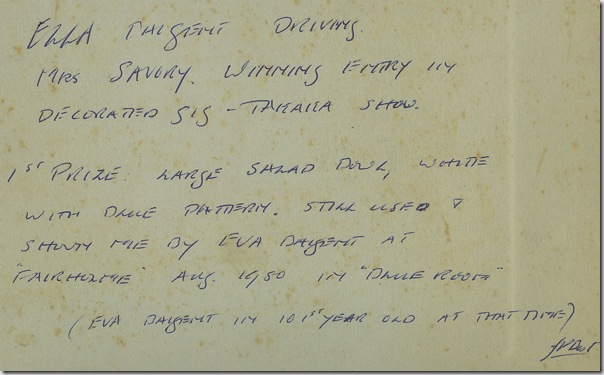 ELLA BAIGENT DRIVING.
MRS SAVORY. WINNING ENTRY IN
DECORATED GIG - TAKAKA SHOW.
1ST PRIZE. LARGE SALAD BOWL, WHITE
WITH BLUE PATTERN. STILL USED &
SHOWN ME BY EVA BAIGENT AT
"FAIRHOLME" AUG. 1980 IN "BLUE ROOM"
(EVA BAIGENT IN 101ST YEAR OLD AT THAT TIME)